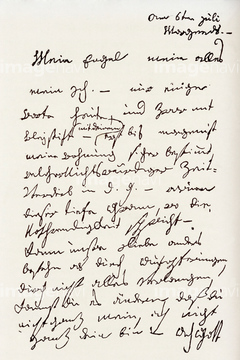 am 6ten Juli
Morgends. –
Mein Engel mein alles
mein Ich. – nur einige
Worte heute, und zwar mit
Bleystift (mit deinem) erst bis morgen ist
meine Wohnung sicher bestimmt
welcher Nichtswürdiger Zeit-
Verderb in d. g. – warum
dieser tiefe Gram, wo die
Nothwendigkeit spricht –
Kann unsre Liebe anders
bestehn als durch Aufopferungen,
durch nicht alles verlangen,
kannst du es ändern, daß du
nicht ganz mein, ich nicht
ganz dein bin – Ach Gott